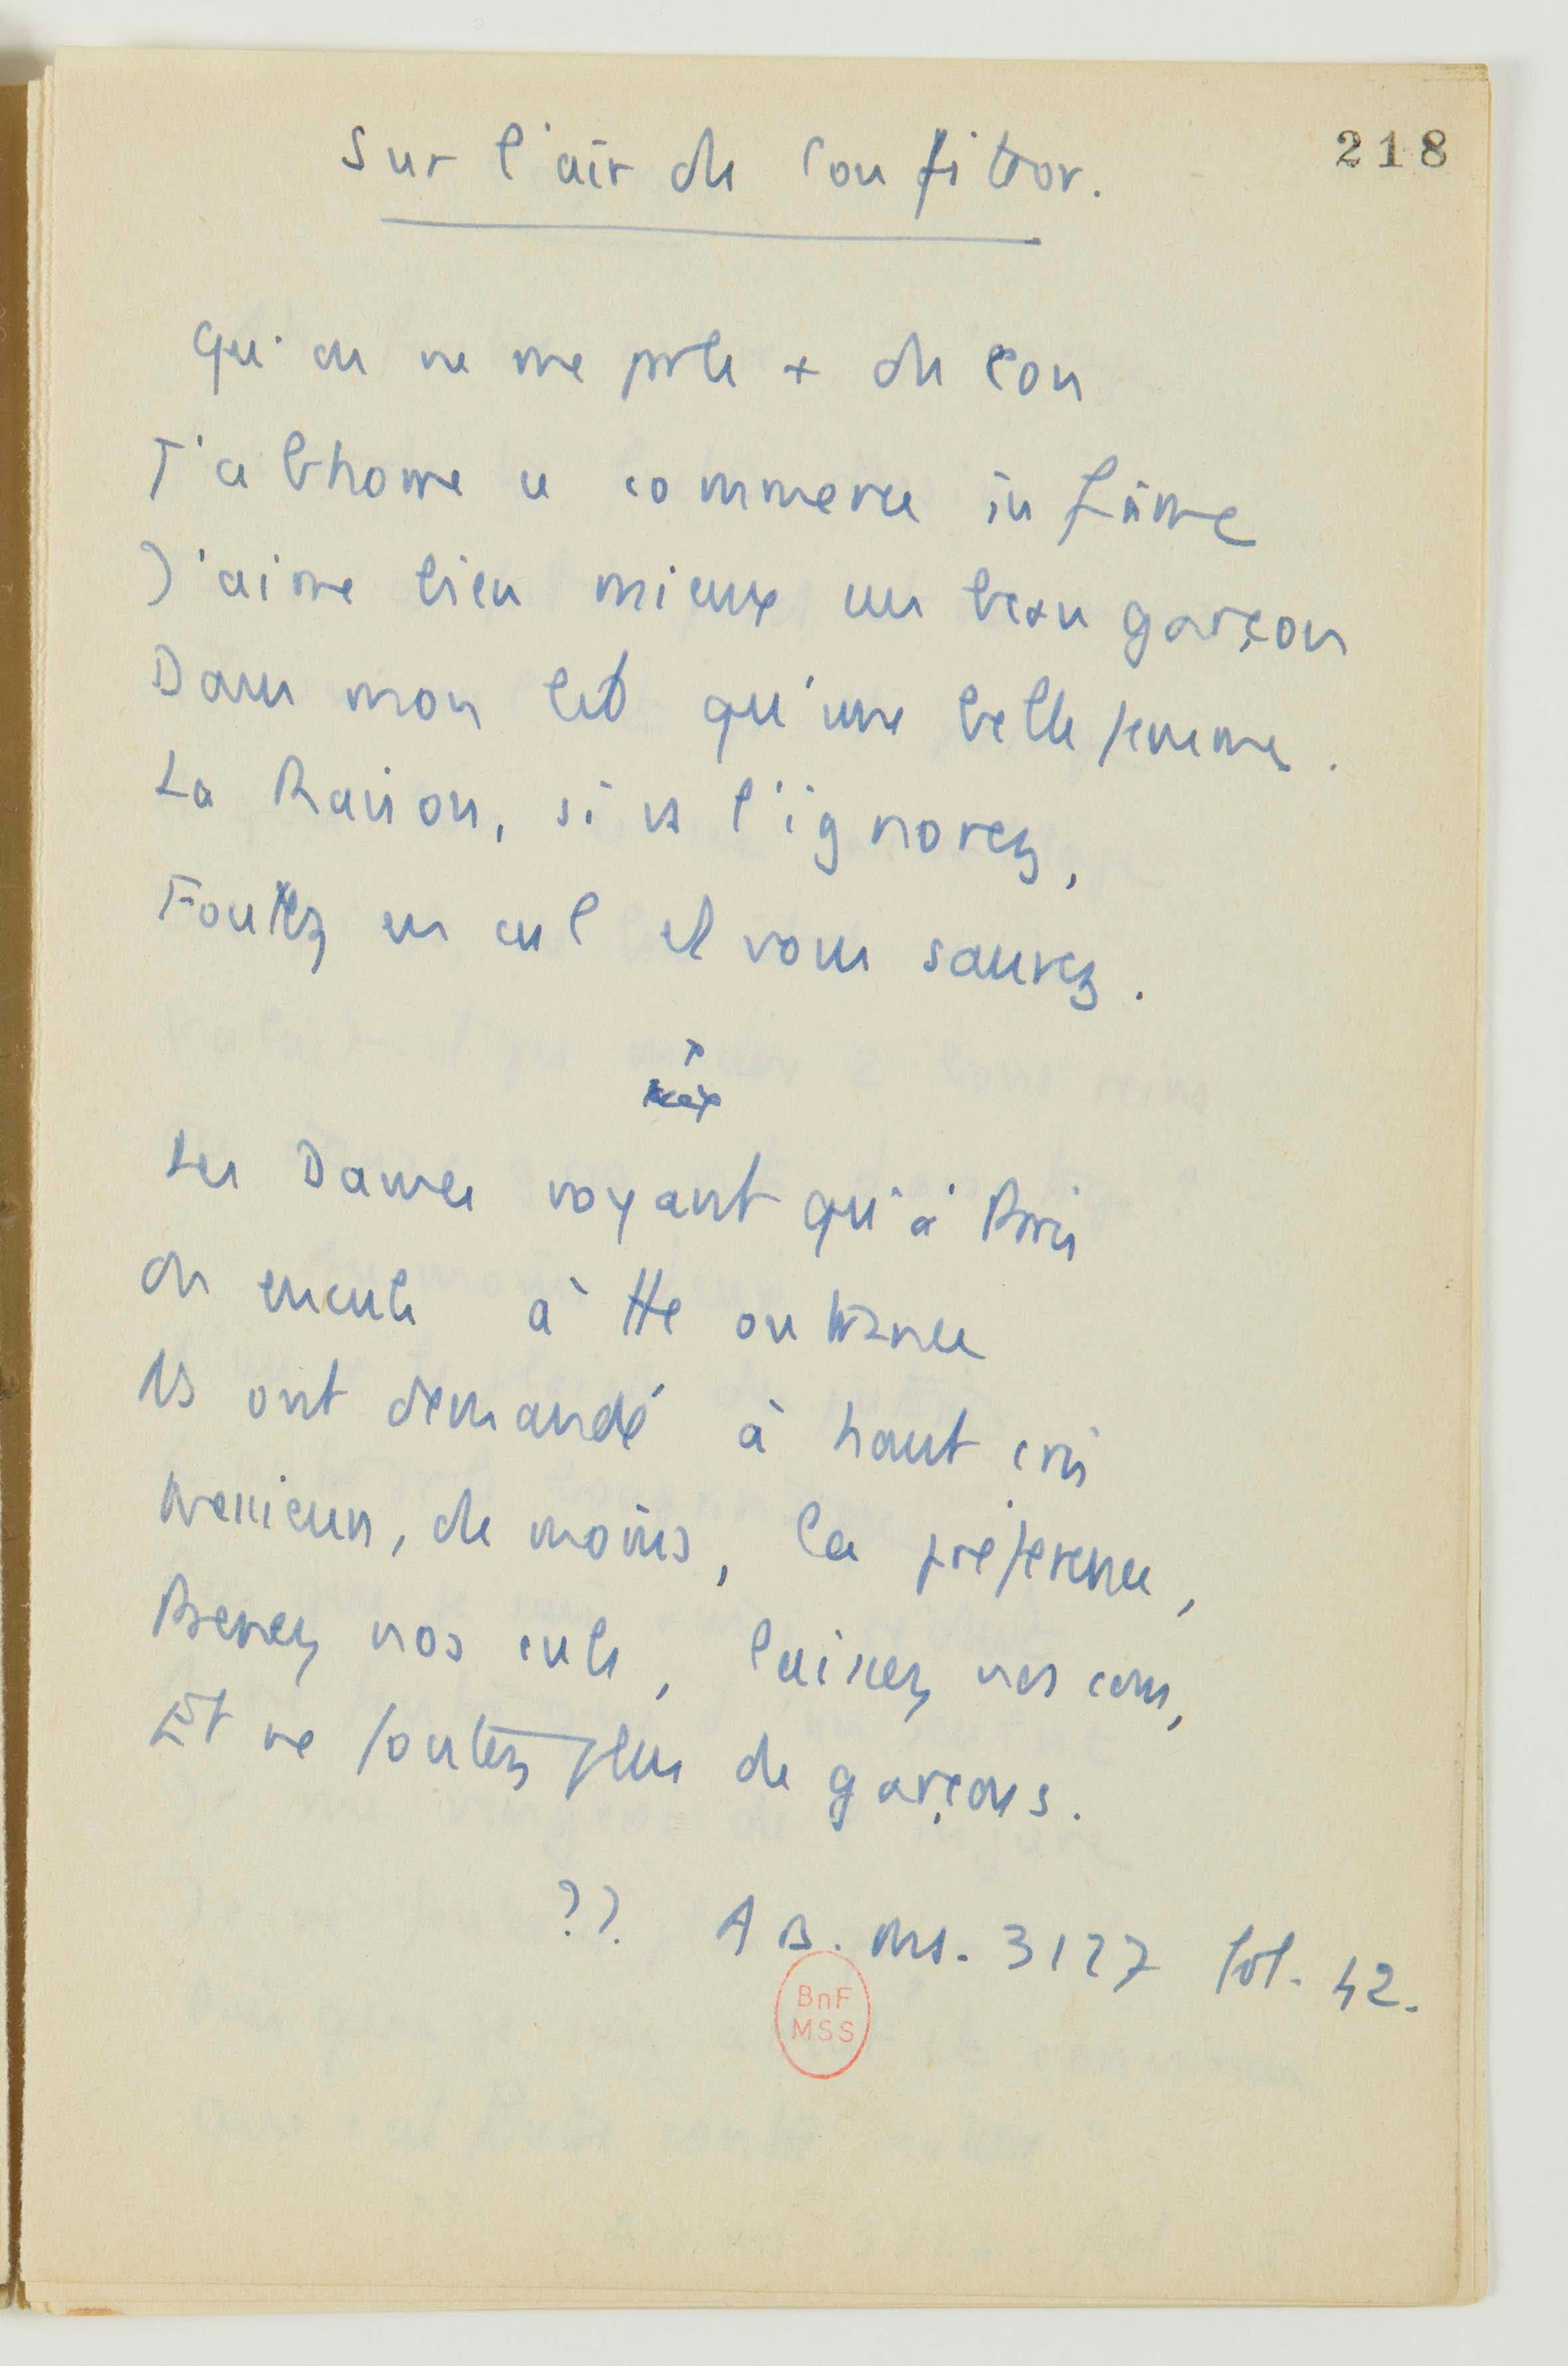 218
Sur l'air de Confiteor.
Qu'on ne me parle + de con
J'abhorre ce commerce infâme
J'aime bien mieux un beau garçon
Dans mon lit qu'une belle femme.
La Raison, si vs l'ignorez,
Foutez en cul et vous saurez.
Les Dames voyant qu'à Paris
On encule à tte outrance
Ils ont demandé à haut cris
Messieurs, de moins, la préférence,
Prenez nos culs, laissez nos cons,
Et ne foutez plus de garçons.
?? AB. Ms. 3127 fol. 42.
BnF
MSS